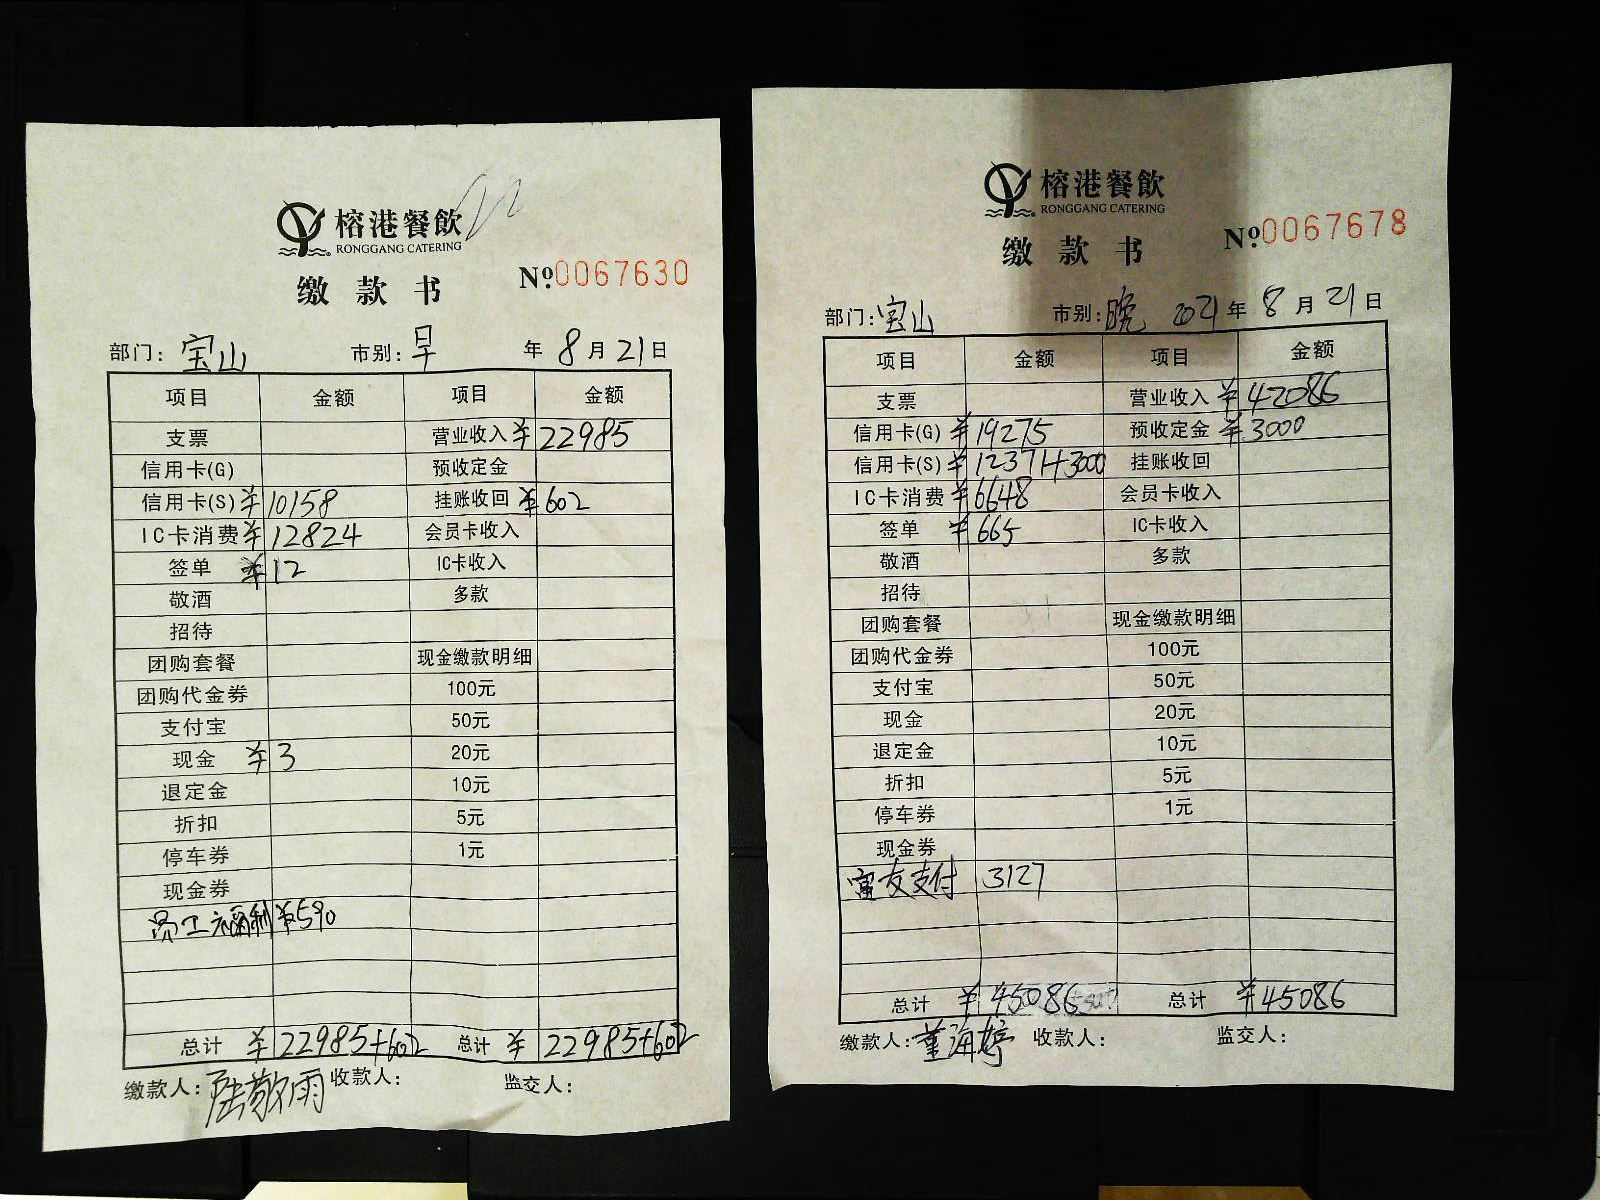 榕港餐飲
RONGGANG CATERING
缴款书
№0067630
部门：宝山 市别：早 年 8 月 21 日
项目 金额 项目 金额
支票 营业收入 ¥22985
信用卡(G) 预收定金
信用卡(S) ¥10158 挂账收回 ¥602
IC卡消费 ¥12824 会员卡收入
签单 ¥12 IC卡收入
敬酒 多款
招待
团购套餐 现金缴款明细
团购代金券 100元
支付宝 50元
现金 ¥3 20元
退定金 10元
折扣 5元
停车券 1元
现金券
员工福利 ¥590
总计 ¥22985+602 总计 ¥22985+602
缴款人：陆敬雨 收款人： 监交人：
榕港餐飲
RONGGANG CATERING
缴款书
№0067678
部门：宝山 市别：晚 2021 年 8 月 21 日
项目 金额 项目 金额
支票 营业收入 ¥42086
信用卡(G) ¥19275 预收定金 ¥3000
信用卡(S) ¥12371+3000 挂账收回
IC卡消费 ¥6648 会员卡收入
签单 ¥665 IC卡收入
敬酒 多款
招待
团购套餐 现金缴款明细
团购代金券 100元
支付宝 50元
现金 20元
退定金 10元
折扣 5元
停车券 1元
现金券
富友支付 3127
总计 ¥45086 总计 ¥45086
缴款人：董海婷 收款人： 监交人：